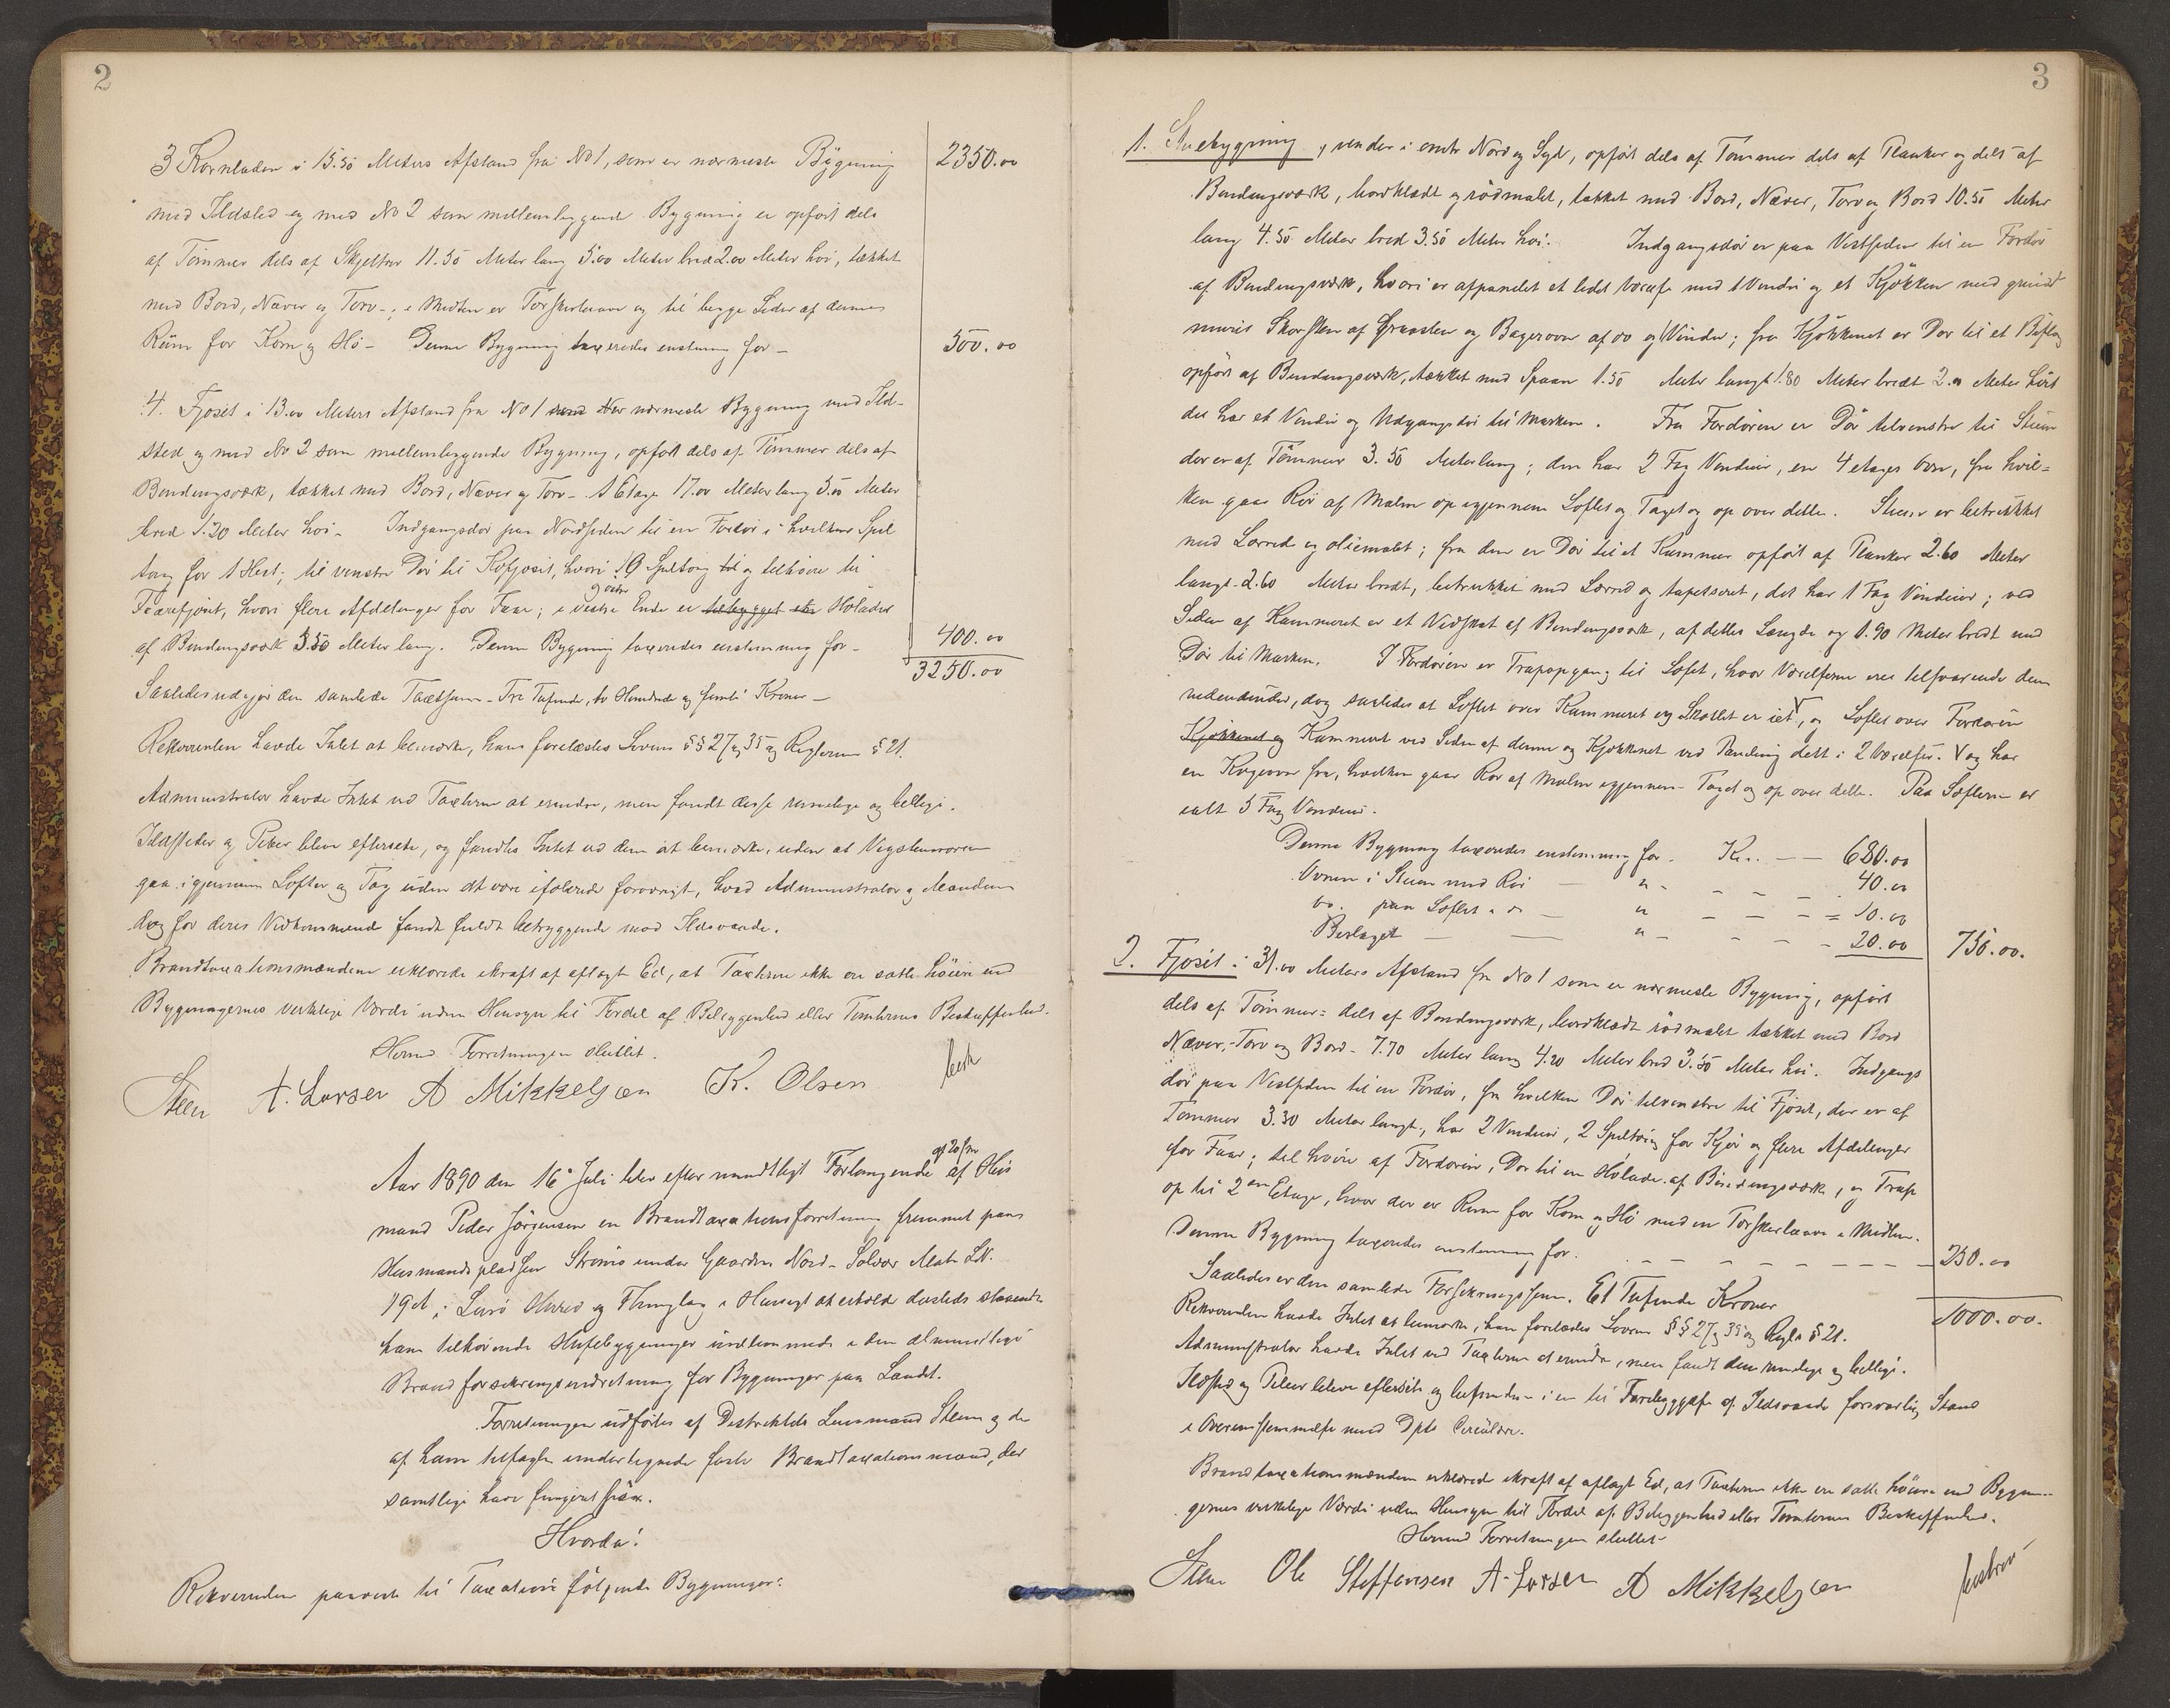 2
3 Kornladen i 15.50 Meters Afstand fra No 1, som er nærmeste Bygning 2350.00
med Ildsted og med No 2 som mellemliggende Bygning er opført dels
af Tømmer dels af Skjeltrær 11.50 Meter lang 5.00 Meter bred 2.00 Meter høi, tækket
med Bord, Næver og Torv - ; i Midten er Tørskerlaave og til begge Sider af denne
Rum for Korn og Hø - Denne Bygning taxeredes enstemmig for - 500.00
4. Fjøset i 13.00 Meters Afstand fra No 1 nærmeste Bygning med Ild-
sted og med No 2 som mellemliggende Bygning, opført dels af Tømmer dels af
Bindingsværk, tækket med Bord, Næver og Torv - 1 Etage 17.00 Meter lang 5.00 Meter
bred 1.20 Meter høi - Indgangsdør paa Nordsiden til en Fordør i hvilken Spil
toug for 1 Hest; til venstre Dør til Kofjøset, hvori 9 Spiltoug og tilhøire til
Faarefjøset, hvori flere Afdelinger for Faar; i vestre Ende er Hølader
af Bindingsværk 3.50 Meter lang. Denne Bygning taxeredes enstemmig for - 400.00
3250.00
Saaledes udgjør den samlede Taxtsum - Tre Tusinde, to Hundrede og femti Kroner -
Rekvirenten havde Intet at bemærke, ham forelæstes Lovens §§ 27 og 35 og Reglerne § 21.
Administrator havde Intet ved Taxterne at erindre, men fandt disse rimelige og billige.
Ildsteder og Piber blev eftersete, og fandtes Intet ved dem at bemærke, uden at
gaa igjennem Lofter og Tag uden at være ifølerede forøvrigt, hvad Administrator og Mændene
dog for deres Vidkommende fandt fuldt betryggende mod Ildsvaade.
Brandtaxationsmændene erklærede ikraft af aflagt Ed, at Taxterne ikke ere satte høiere end
Bygningernes virkelige Værdi uden Hensyn til Fordel af Beliggenhed eller Tomternes Beskaffenhed.
Hermed Forretningen sluttet.
Steen A. Larsen A Mikkelsen K. Olsen
Aar 1890 den 16 Juli blev efter mundtligt Forlangende af Hus
mand Peder Jørgensen en Brandtaxationsforretning fremmet paa
Husmandspladsen Strømo under Gaarden Nord-Solvær Matr. LN.
19 A i Lurø Herred og Thinglag i Hensigt at erholde dersteds staaende
ham tilhørende Husebygninger indlemmede i den almindelige
Brandforsikringsindretning for Bygninger paa Landet.
Forretningen udførtes af Distriktets Lensmand Steen og de
af ham tilsagte undertegnede faste Brandtaxationsmænd, der
samtlige have fungeret før.
Hvorda!
Rekvirenten paaviste til Taxation følgende Bygninger:
3
1. Stuebygning, vender i enden Nord og Syd, opført dels af Tømmer dels af Planker og dels af
Bindingsværk, bordklædt og rødmalet, tækket med Bord, Næver, Torv og Bord 10.50 Meter
lang 4.50 Meter bred 3.50 Meter høi. Indgangsdør er paa Vestsiden til en Fordør
af Bindingsværk, hvori er afpanelet et lidet Værelse med 1 Vindu og et Kjøkken med grund
muret Skorsten af Graasten og Bagerovn af do og 1 Vindu; fra Kjøkkenet er Dør til et Bislag
opført af Bindingsværk, tækket med Spaan 1.50 Meter langt 1.80 Meter bredt 2.00 Meter høit
det har et Vindu og Udgangsdør til Marken. Fra Fordøren er Dør tilvenstre til Stuen
der er af Tømmer 3.50 Meter lang; den har 2 Fag Vinduer, en 4 etages Ovn, fra hvil=
ken gaar Rør af Malm op igjennem Loftet og Taget og op over dette. Stuen er betrukket
med Lærred og oliemalet; fra den er Dør til et Kammer opført af Planker 2.60 Meter
langt 2.60 Meter bredt, betrukket med Lærred og tapetseret, det har 1 Fag Vinduer; ved
Siden af Kammeret er et Vedskot af Bindingsværk, af dettes Længde og 1.90 Meter bredt med
Dør til Marken. I Fordøren er Trapopgang til Loftet, hvor Værelserne ere tilsvarende dem
nedenunder, dog saaledes at Loftet over Kammeret og Skottet er eet, og Loftet over Fordøren
Kjøkkenet og Kammeret ved Siden af denne og Kjøkkenet ved Paneling delt i 2 Værelser. og har
en Kogeovn fra, hvilken gaar Rør af Malm igjennem Taget og op over dette. Paa Lofterne er
ialt 5 Fag Vinduer.
Denne Bygning taxeredes enstemmig for. Kr. - - 680.00
Ovnen i Stuen med Rør - " - - - 40.00
Do. paa Loftet " do - " - - - 10.00
Bislaget - - " - - - 20.00 750.00.
2. Fjøset i 31.00 Meters Afstand fra No 1 som er nærmeste Bygning, opført
dels af Tømmer = dels af Bindingsværk, bordklædt rødmalet tækket med Bord
Næver, Torv og Bord - 7.70 Meter lang 4.20 Meter bred 3.50 Meter høi. Indgangs
dør paa Vestsiden til en Fordør, fra hvilken Dør tilvenstre til Fjøset, der er af
Tømmer 3.30 Meter langt, har 2 Vinduer, 2 Spiltoug for Kjør og flere Afdelinger
for Faar; til høire af Fordøren, Dør til en Hølade af Bindingsværk, og Trap
op til 2den Etage, hvor der er Rum for Korn og Hø med en Tørskerlaave i Midten.
Denne Bygning taxeredes enstemmig for. - - - - - - 250.00
Saaledes er den samlede Forsikringssum. Et Tusinde Kroner 1000.00.
Rekvirenten havde Intet at bemærke, han forelæstes Lovens §§ 27 og 35 og Regls § 21.
Administrator havde Intet ved Taxterne at erindre, men fandt dem rimelige og billige.
Ildsted og Piber bleve eftersete og befundne i en til Forebyggelse af Ildsvaade forsvarlig Stand
i Overensstemmelse med Dpts Circulære.
Brandtaxationsmændene erklærede ikraft af aflagt Ed, at Taxterne ikke ere satte høiere end Bygnin-
gernes virkelige Værdi uden Hensyn til Fordel af Beliggenhed eller Tomternes Beskaffenhed.
Hermed Forretningen sluttet-
Steen Ole Steffensen A. Larsen A Mikkelsen